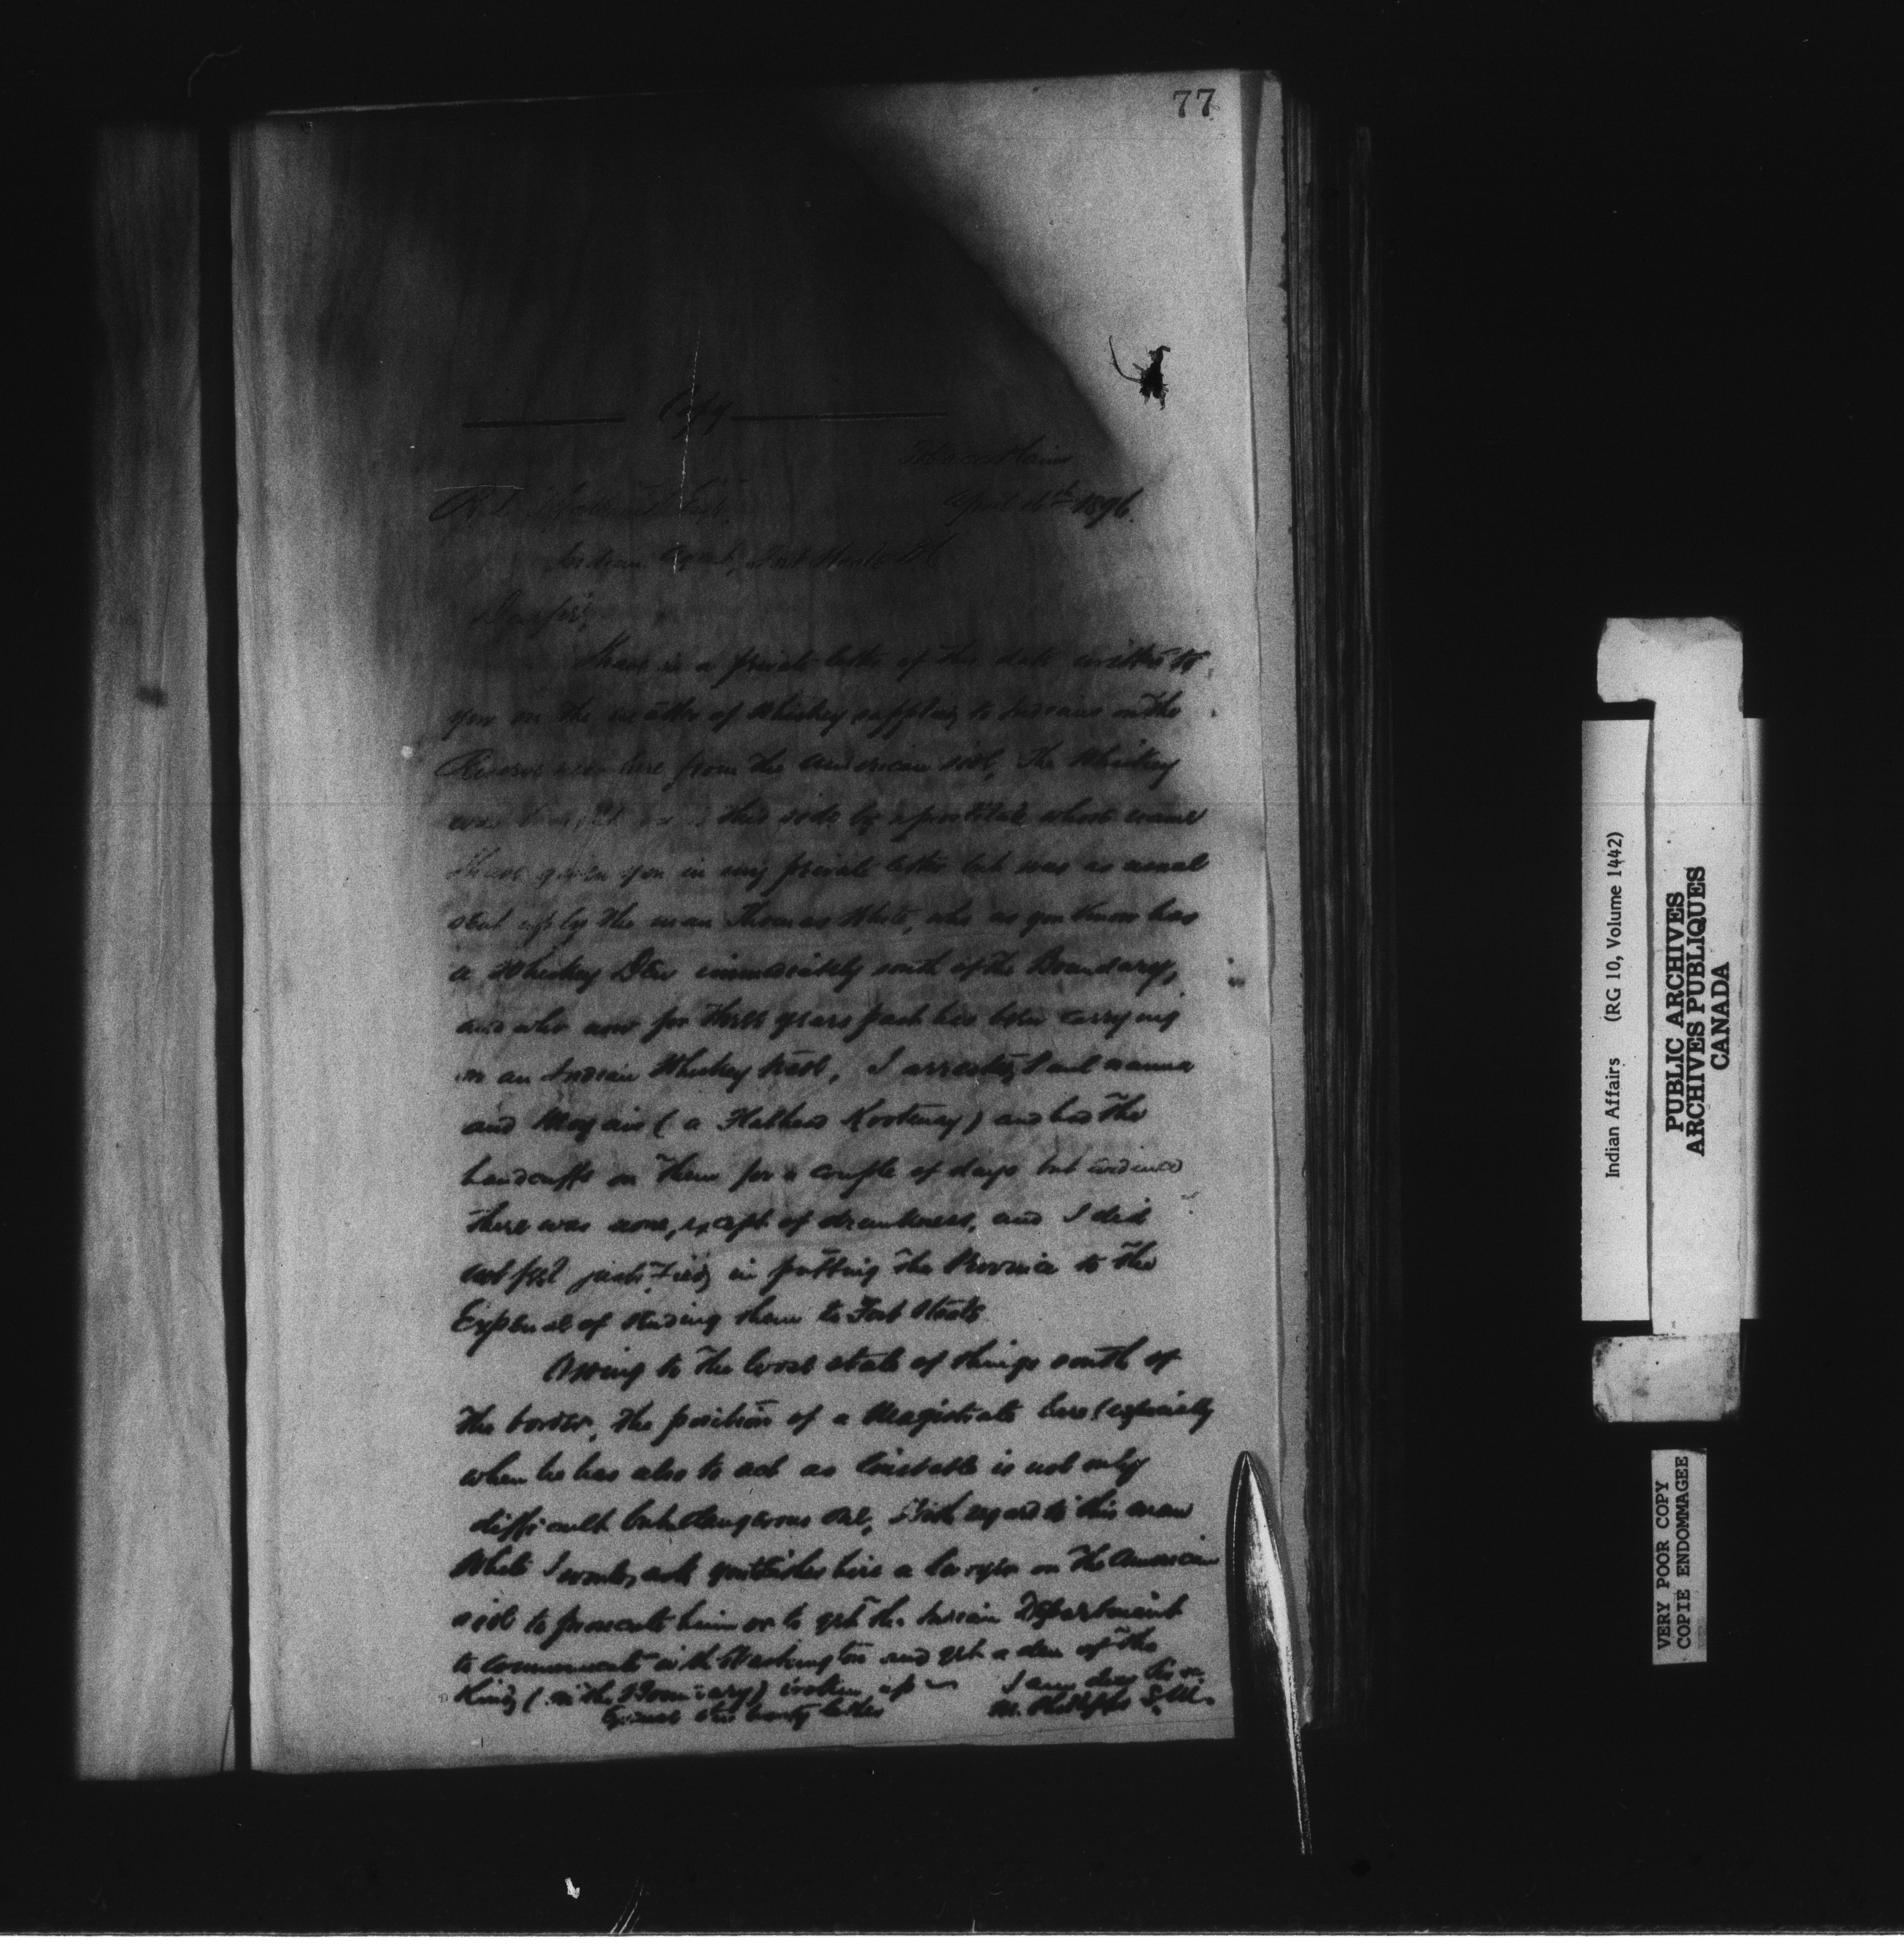 77
Copy
Tobacco Plains
April 11th 1896.
Indian Agent, Fort Steele BC
Dear Sir,
I have in a private letter of this date written to
you on the matter of Whiskey supplied to Indians on the
Reserve here from the American side, The Whiskey
was this side by a whose name
I have given you in my private letter but was as usual
sent up by the man Thomas White, who as you know has
a Whiskey Den immediately south of the Boundary,
and who now for three years past has been carrying
on an Indian Whiskey trade, I arrested
and (a Flathead Kootenay) and had the
handcuffs on them for a couple of days but evidence
there was none, except of drunkness, and I did
not feel justified in putting the Province to the
Expense of sending them to Fort Steele
Owing to the loose state of things south of
the border, the position of a Magistrate here (especially
when he has also to act as Constable is not only
difficult but dangerous one, With regard to this man
White I would ask you either hire a lawyer on the American
side to prosecute him or to get the Indian Department
to communicate with Washington and get a den of the
kind (on the Boundary) broken up I am dear Sir
M. Phillipps S.M.
Indian Affairs (RG 10, Volume 1442)
PUBLIC ARCHIVES
ARCHIVES PUBLIQUES
CANADA
VERY POOR COPY
COPIE ENDOMMAGEE